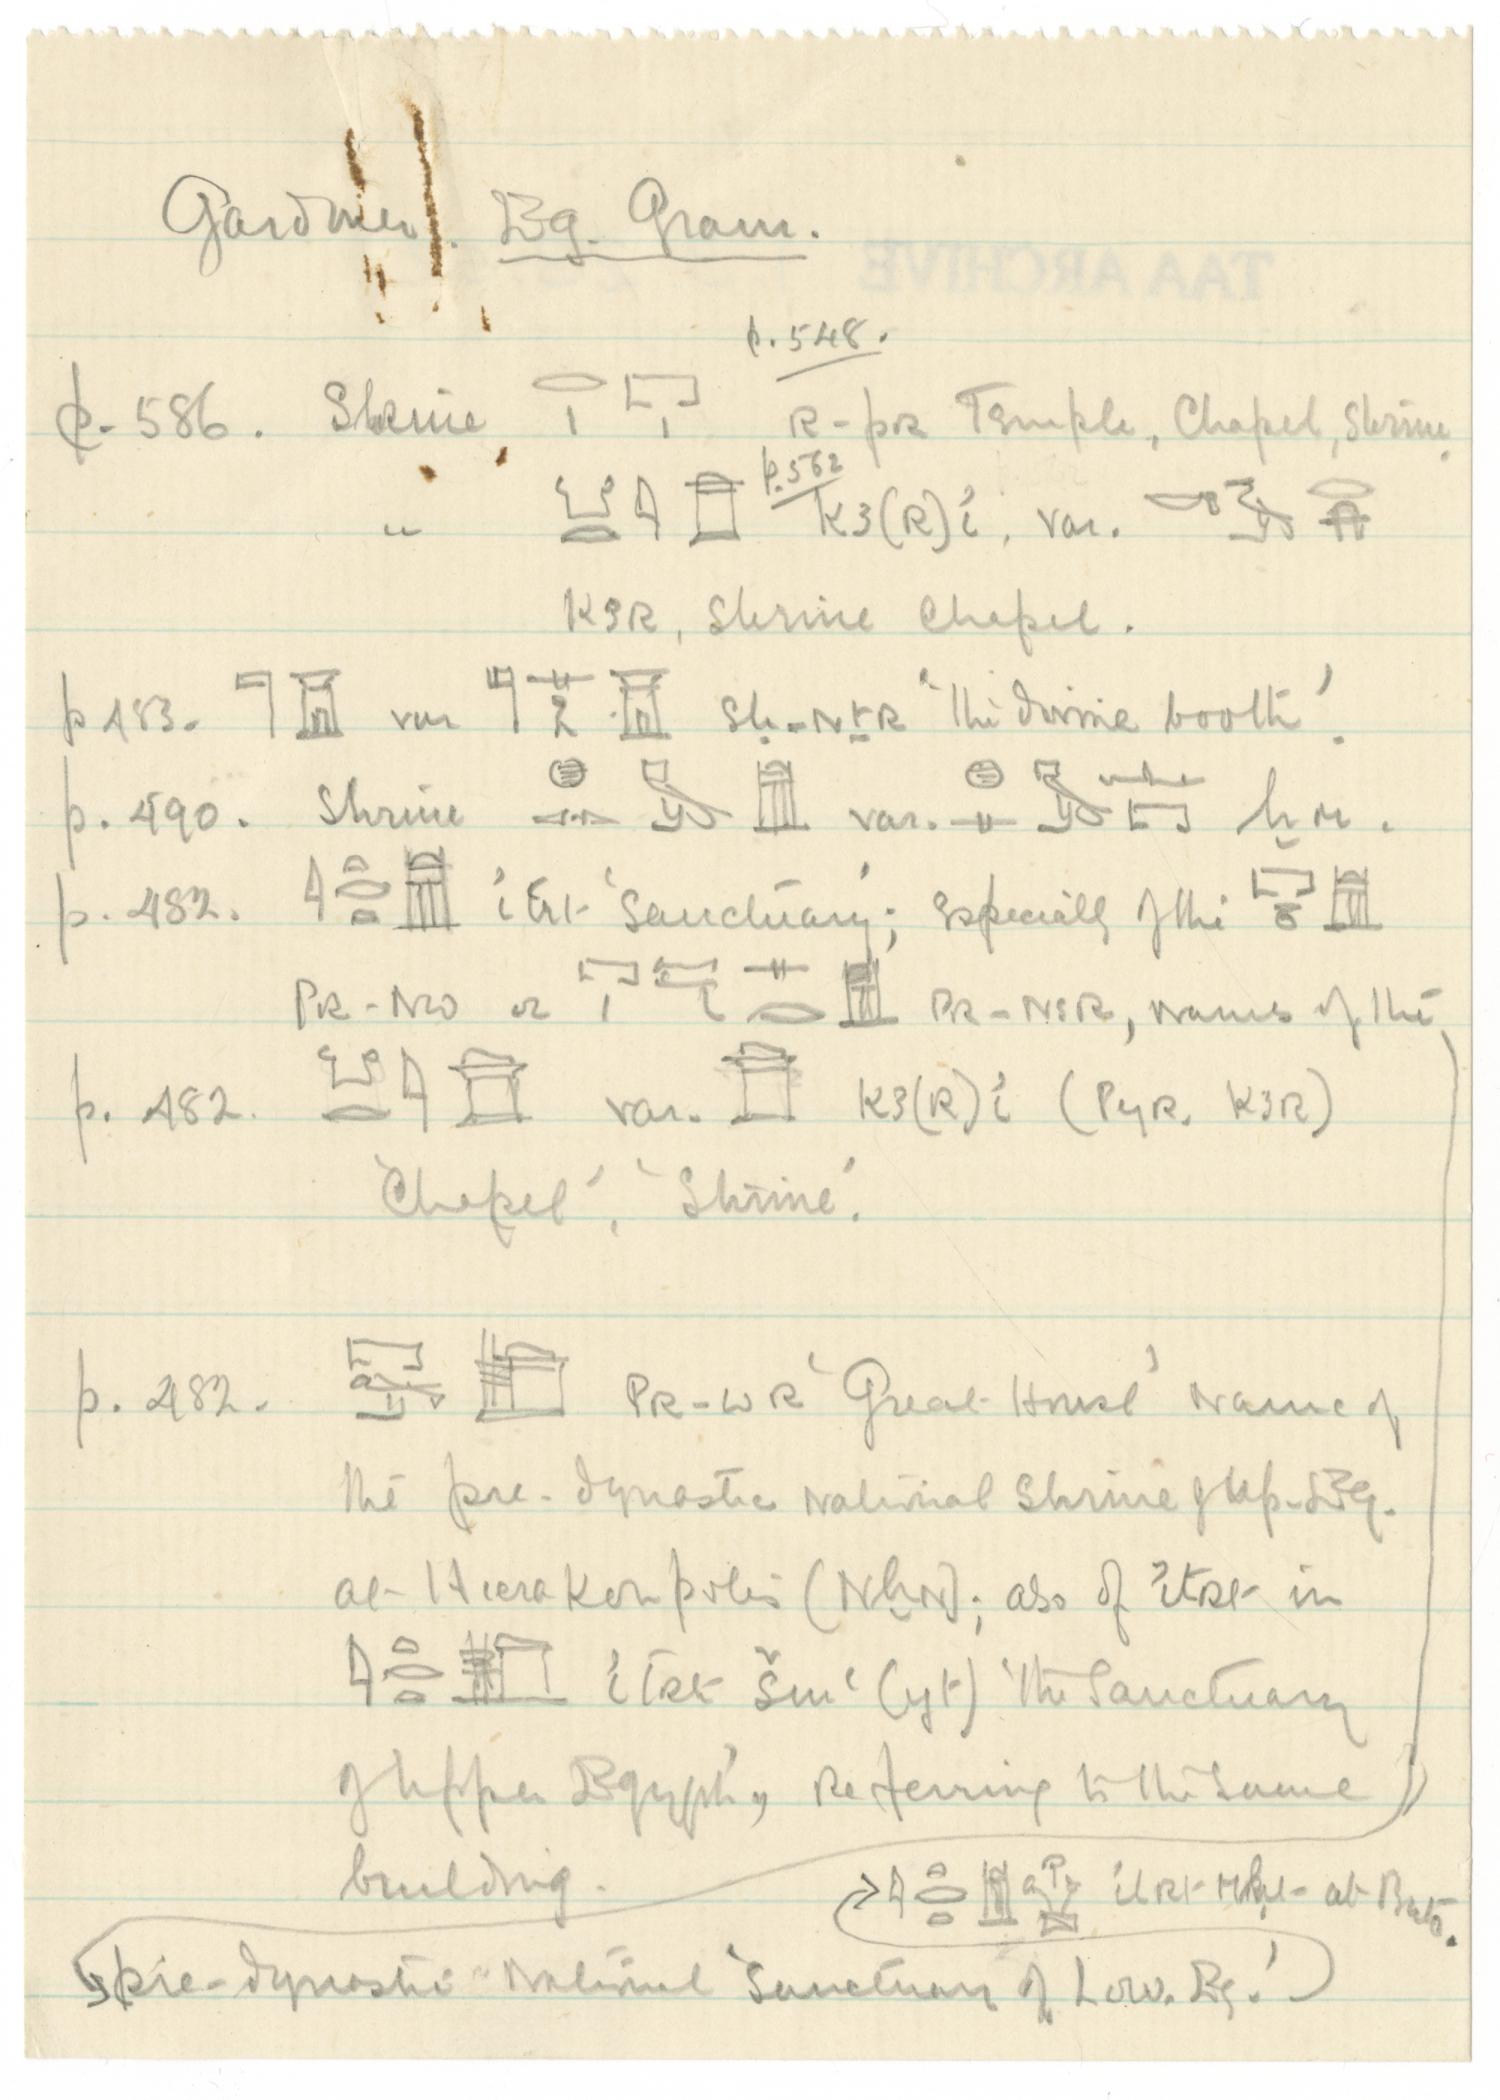 Gardiner. Eg. Gram.
TAA ARCHIVE
p. 548.
p. 586. Shrine R-pR Temple, Chapel, Shrine.
p. 562
" K3(R)i, var.
K3R, Shrine Chapel.
p 483. var Sḥ-NṯR 'the divine booth'.
p. 490. Shrine var. ḫm.
p. 482. itrt 'Sanctuary'; especially of the
PR-NW or PR-NSR, names of the
p. 482. var. K3(R)i (PyR. K3R)
'Chapel', 'Shrine'.
p. 482. PR-WR 'Great House' Name of
the pre-dynastic National Shrine of Up. Eg.
at Hierakonpolis (NḫN); also of itRt in
itRt Šmʿ(yt) 'the Sanctuary
of Upper Egypt', Referring to the Same
building.
itRt Mḥt at Buto.
pre-dynastic National 'Sanctuary of Low. Eg.'